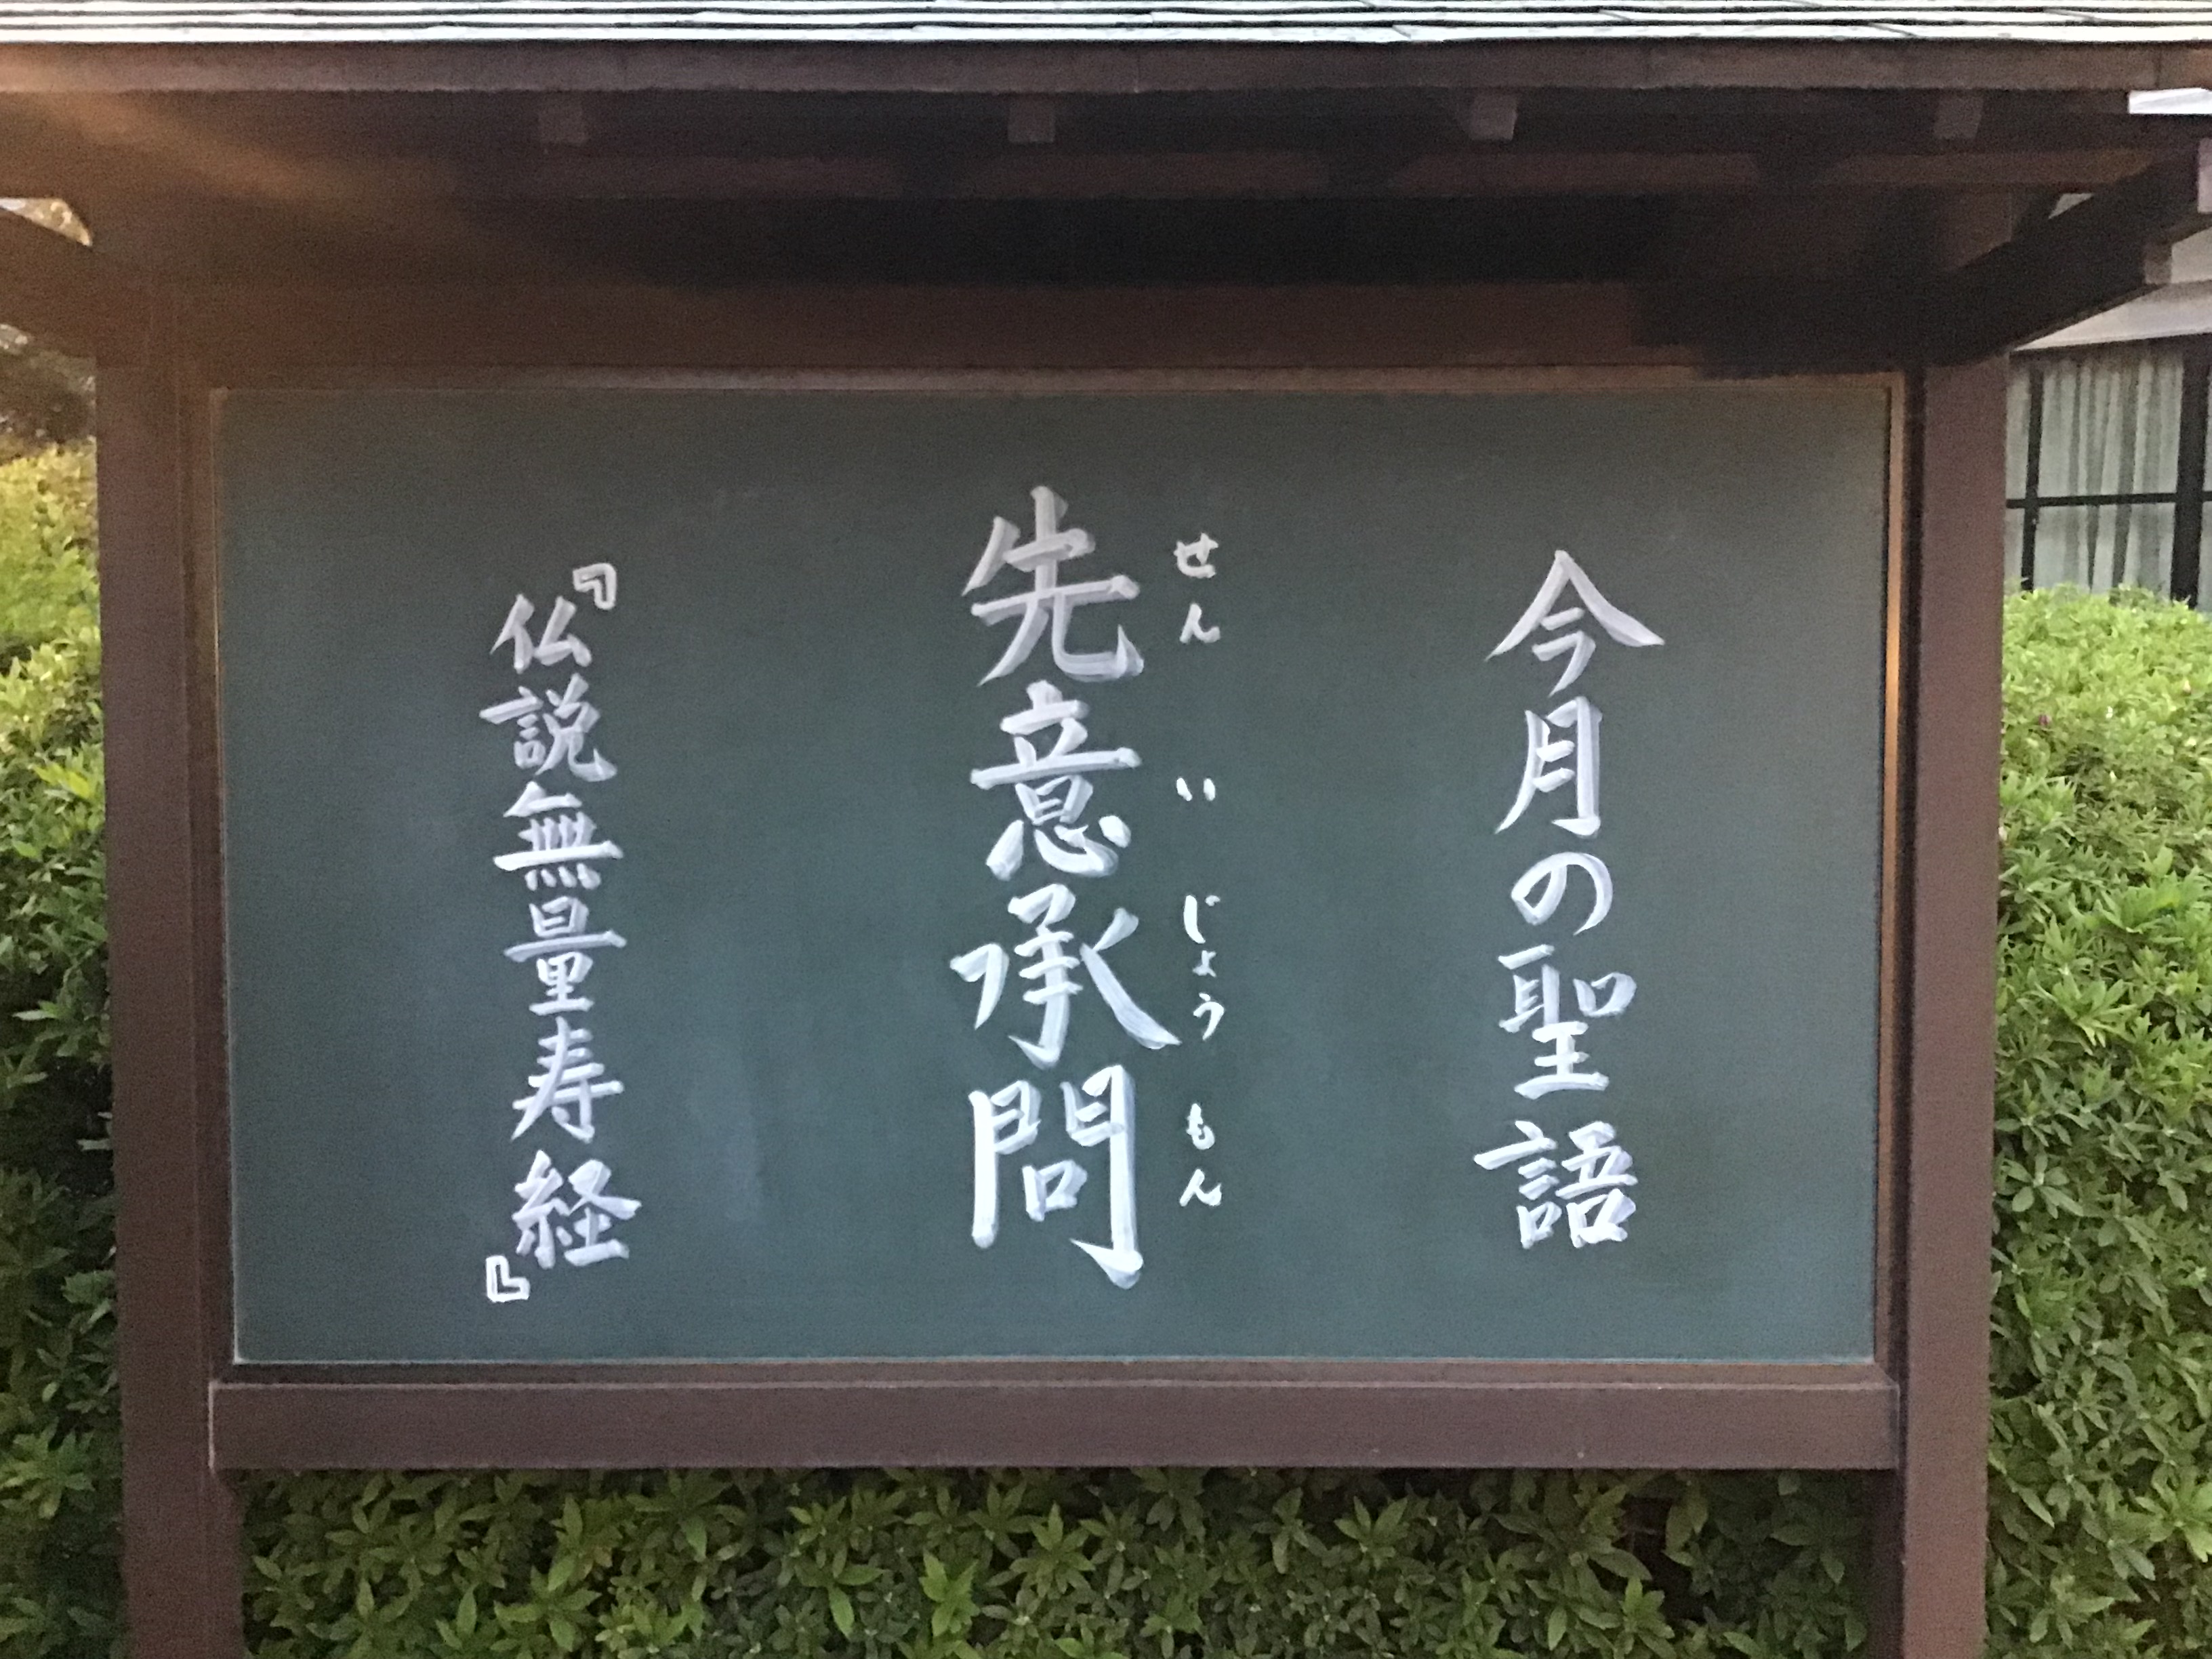 今月の聖語
せんいじょうもん
先意承問
『仏説無量寿経』